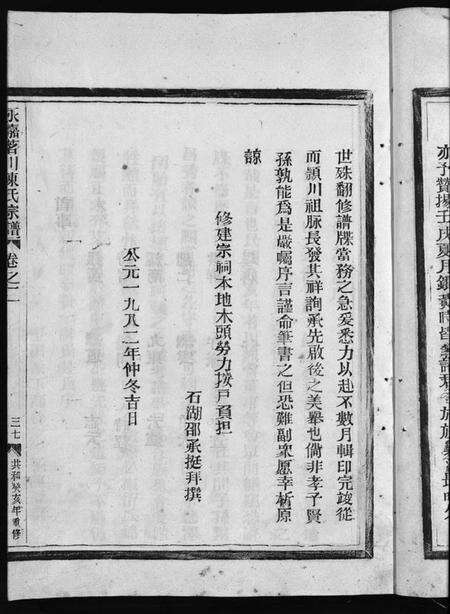 亦予贊揚壬戌夏月
世殊翻修譜牒當務之急爰悉力以赴不數月輯印完竣從
而潁川祖脉長發其祥詢承先啟後之美舉也倘非孝子賢
孫孰能為是嚴囑序言謹命筆書之但恐難副眾愿幸析原
諒
修建宗祠本地木頭勞力按戶負担
石湖邵承挺拜撰
公元一九八二年仲冬吉日
永嘉茗川陳氏宗譜
卷之二
三七
共和癸亥年重修